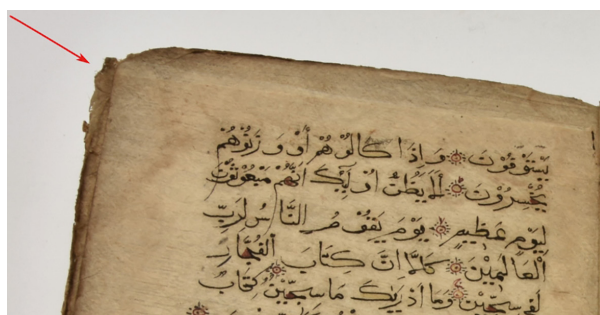 يَسْتَوْفُوْنَ وَاِذَا كَالُوْهُمْ أَوْ وَزَنُوْهُمْ
يُخْسِرُوْنَ أَلَا يَظُنُّ أُوْلٰٓئِكَ اَنَّهُمْ مَبْعُوْثُوْنَ
لِيَوْمٍ عَظِيْمٍ يَوْمَ يَقُوْمُ النَّاسُ لِرَبِّ
الْعَالَمِيْنَ كَلَّا اِنَّ كِتَابَ الْفُجَّارِ
لَفِيْ سِجِّيْنٍ وَمَا اَدْرٰىكَ مَا سِجِّيْنٌ كِتَابٌ